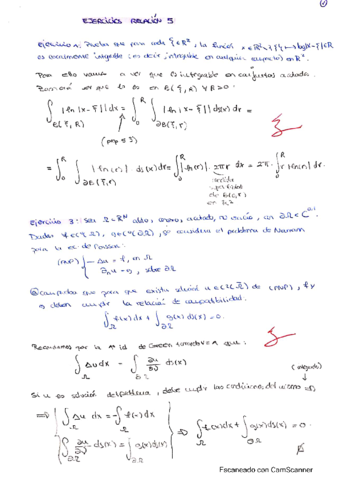 EJERCICIOS RELACIÓN 5
Ejercicio 1: Prueba que para cada ξ∈ℝ², la función x∈ℝ²\{ξ}↦log|x-ξ|∈ℝ
es localmente integrable (es decir, integrable en cualquier compacto) en ℝ².
Para ello vamos a ver que es integrable en conjuntos acotados.
que lo es en B(ξ,R) ∀R>0.
∫_{B(ξ,R)} |ln|x-ξ|| dx = ∫_0^R ∫_{∂B(ξ,r)} |ln|x-ξ|| ds(x) dr =
= ∫_0^R ∫_{∂B(ξ,r)} |ln(r)| ds(x) dr = ∫_0^R |ln(r)| 2πr dr = 2π ∫_0^R r|ln(r)| dr.
medida
superficial
de
en ℝ²
Ejercicio 3: Sea Ω⊂ℝᴺ abto, conexo, acotado, no vacío, con ∂Ω∈C
Dadas g∈C(∂Ω), se considera el problema de Neumann
para la ec. de Poisson:
(PNP) { -Δu = f, en Ω
∂ₙu = g, sobre ∂Ω
Comprueba que para que exista solución de (PNP), f y
g deben cumplir la relación de compatibilidad
∫_Ω f(x)dx + ∫_{∂Ω} g(x)ds(x) = 0.
Recordamos por la 1ª id. de Green que:
∫_Ω Δu dx = ∫_{∂Ω} ∂u/∂ν ds(x)
Si u es solución del problema, debe cumplir las condiciones del
⇒ { ∫_Ω Δu dx = -∫_Ω f(x)dx
∫_{∂Ω} ∂u/∂ν ds(x) = ∫_{∂Ω} g(x)ds(x) } ⇒ ∫_Ω f(x)dx + ∫_{∂Ω} g(x)ds(x) = 0.
Escaneado con CamScanner